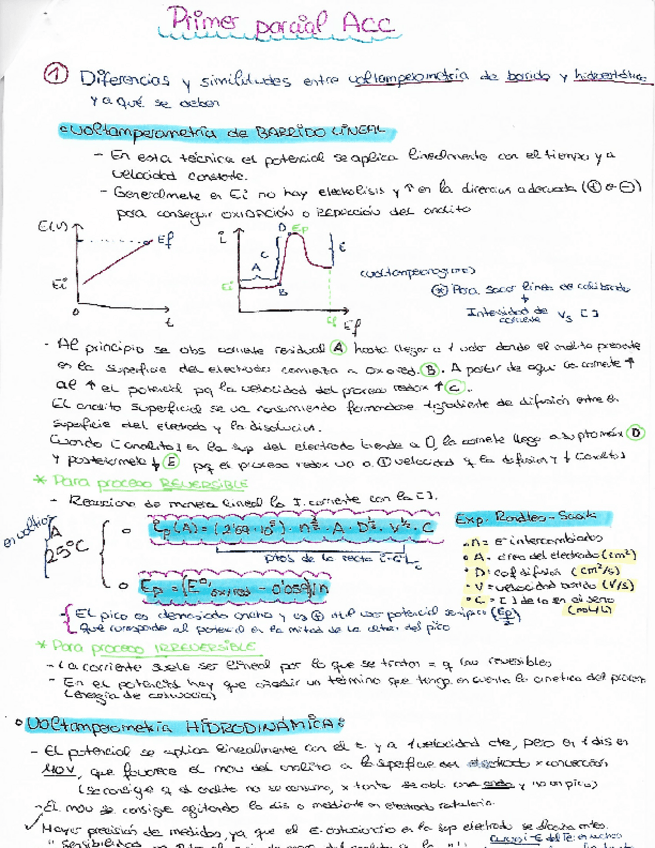 Primer parcial Acc
① Diferencias y similitudes entre voltamperometría de barrido y hidrostática
y a qué se deben
• Voltamperometría de BARRIDO LINEAL
- En esta técnica el potencial se aplica linealmente con el tiempo y a
velocidad constante.
- Generalmente en Ei no hay electrolisis y ↑ en la dirección adecuada (+ o -)
para conseguir OXIDACIÓN o REDUCCIÓN del analito
E(V) Ef Ei 0 t
i D Ep C E A B Ei Ef Ef
(voltamperograma)
* Para sacar línea de calibrado
↓
Intensidad de corriente vs [ ]
· Al principio se obs corriente residual (A) hasta llegar a 1 valor donde el analito presente
en la superficie del electrodo comienza a ox o red. (B). A partir de aquí la corriente ↑
al ↑ el potencial pq la velocidad del proceso redox ↑ (C).
El analito superficial se va consumiendo formandose 1 gradiente de difusión entre la
superficie del electrodo y la disolución.
Cuando [analito] en la sup del electrodo tiende a 0, la corriente llega a su pto máx (D)
y posteriormente ↓ (E) pq el proceso redox va a ↑ velocidad q la difusión y ↓ [analito]
* Para proceso REVERSIBLE
- Relaciona de manera lineal la I. corriente con la [ ].
en voltios
A 25°C
Ip (A) = (2'69·10⁵) · n^3/2 · A · D^1/2 · V^1/2 · C
ptos de la recta
Ep = (E°' ox/red - 0'059)/n
Exp. Randles-Sevcik
• n = e⁻ intercambiados
• A = área del electrodo (cm²)
• D = cof difusión (cm²/s)
• V = velocidad barrido (V/s)
• C = [ ] de la en el seno
(mol/L)
El pico es demasiado ancho y es + útil usar potencial semipico (Ep/2)
que corresponde al potencial en la mitad de la altura del pico
* Para proceso IRREVERSIBLE
- La corriente suele ser lineal por lo que se tratan = q las reversibles
- En el potencial hay que añadir un término que tenga en cuenta la cinética del proceso
• Voltamperometría HIDRODINÁMICA:
- El potencial se aplica linealmente con el t. y a 1 velocidad cte, pero en 1 dis en
MOV, que favorece el mov del analito a la superficie del electrodo x convección
(se consigue q el analito no se consuma, x tanto se obt. una onda y no un pico)
- El mov se consigue agitando la dis o mediante un electrodo rotatorio.
✓ Mayor precisión de medidas, ya que el E. estacionario en la sup electrodo se alcanza antes.